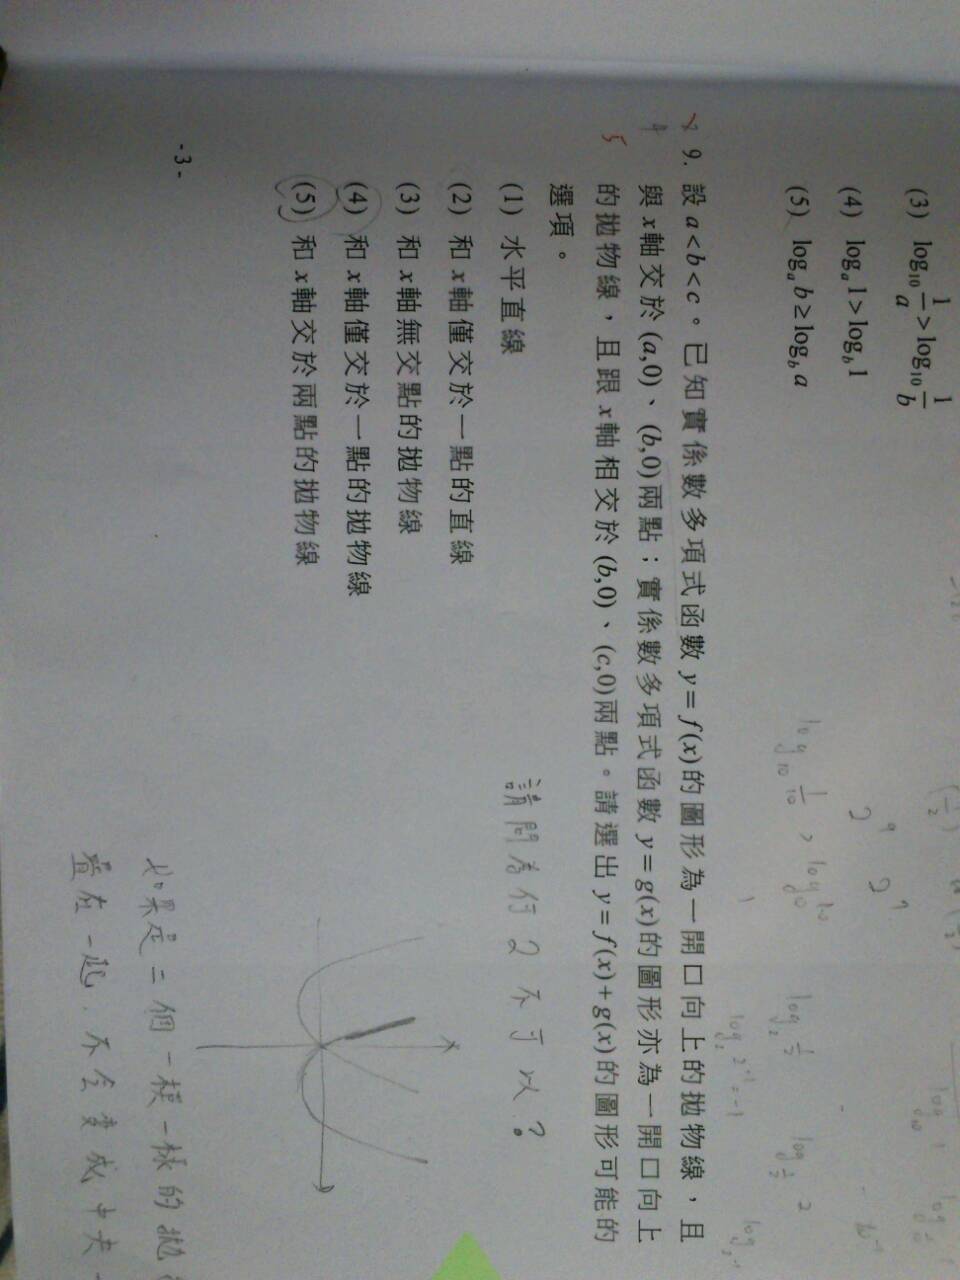 (3) log₁₀ 1/a > log₁₀ 1/b
(4) logₐ 1 > log_b 1
(5) logₐ b ≥ log_b a
9. 設 a < b < c。已知實係數多項式函數 y = f(x) 的圖形為一開口向上的拋物線，且
與 x 軸交於 (a,0)、(b,0) 兩點；實係數多項式函數 y = g(x) 的圖形亦為一開口向上
的拋物線，且跟 x 軸相交於 (b,0)、(c,0) 兩點。請選出 y = f(x) + g(x) 的圖形可能的
選項。
(1) 水平直線
(2) 和 x 軸僅交於一點的直線
(3) 和 x 軸無交點的拋物線
(4) 和 x 軸僅交於一點的拋物線
(5) 和 x 軸交於兩點的拋物線
請問為何 2 不可以？
如果是二個一模一樣的拋
疊在一起，不會變成中夾一
- 3 -